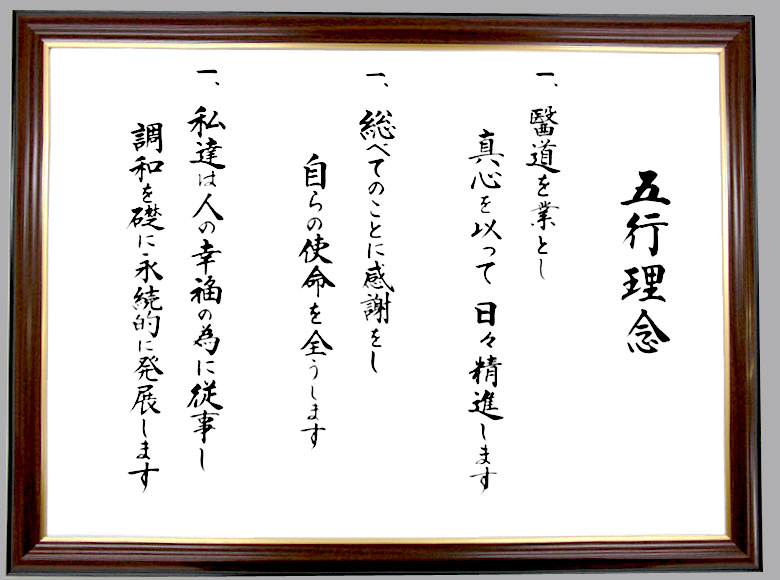 五行理念
一、醫道を業とし
真心を以って 日々精進します
一、総べてのことに感謝をし
自らの使命を全うします
一、私達は人の幸福の為に従事し
調和を礎に永続的に発展します